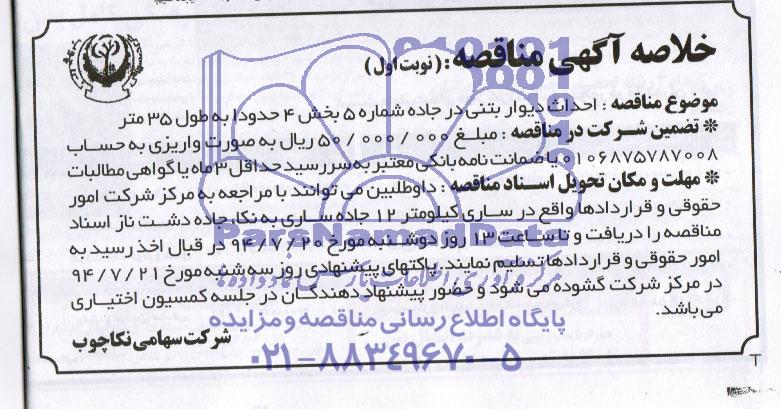 خلاصه آگهی مناقصه : (نوبت اول)
موضوع مناقصه : احداث دیوار بتنی در جاده شماره ۵ بخش ۴ حدودا به طول ۳۵ متر
❊ تضمین شرکت در مناقصه : مبلغ ۵۰/۰۰۰/۰۰۰ ریال به صورت واریزی به حساب
۰۱۰۶۸۷۵۷۸۷۰۰۸ یا ضمانت نامه بانکی معتبر به سررسید حداقل ۳ ماه یا گواهی مطالبات
❊ مهلت و مکان تحویل اسناد مناقصه : داوطلبین می توانند با مراجعه به مرکز شرکت امور
حقوقی و قراردادها واقع در ساری کیلومتر ۱۲ جاده ساری به نکا، جاده دشت ناز اسناد
مناقصه را دریافت و تا ساعت ۱۳ روز دوشنبه مورخ ۹۴/۷/۲۰ در قبال اخذ رسید به
امور حقوقی و قراردادها تسلیم نمایند. پاکتهای پیشنهادی روز سه شنبه مورخ ۹۴/۷/۲۱
در مرکز شرکت گشوده می شود و حضور پیشنهاد دهندگان در جلسه کمسیون اختیاری
می باشد.
شرکت سهامی نکاچوب
ParsNamadData
پایگاه اطلاع رسانی مناقصه و مزایده
۰۲۱-۸۸۳۴۹۶۷۰-۵